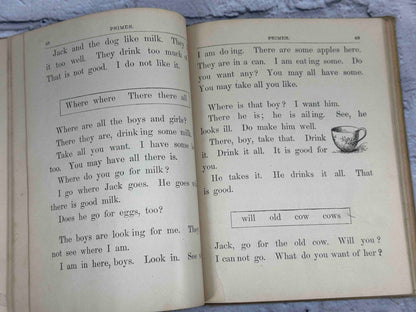 48 PRIMER.
Jack and the dog like milk. They
it too well. They drink too much of
That is not good. I do not like it.
Where where There there all
Where are all the boys and girls?
There they are, drinking some milk.
Take all you want. I have some
too. You may have all there is.
Where do you go for milk?
I go where Jack goes. He goes
there is good milk.
Does he go for eggs, too?
The boys are looking for me. They
not see where I am.
I am in here, boys. Look in. See
PRIMER. 49
I am doing. There are some apples here.
They are in a can. I am eating some. Do
you want any? You may all have some.
You may take all you like.
Where is that boy? I want him.
There he is; he is ailing. See, he
looks ill. Do make him well.
There, boy, take that. Drink
it. Drink it all. It is good for
you.
He takes it. He drinks it all. That
is good.
will old cow cows
Jack, go for the old cow. Will you?
I can not go. What do you want of her?